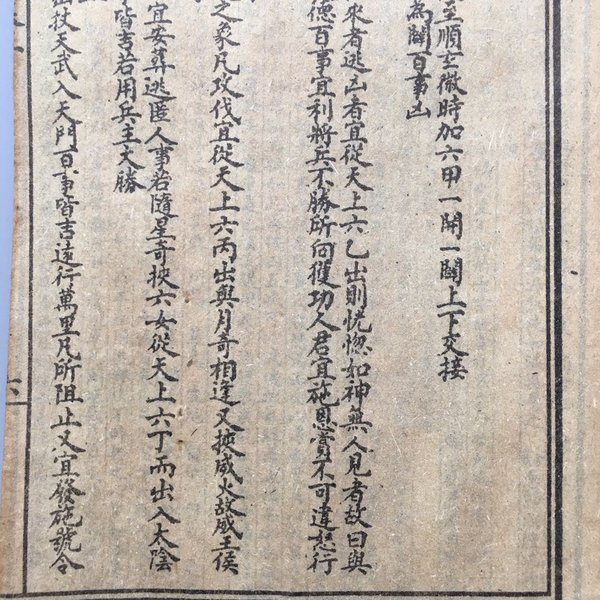 至順玄微時加六甲一開一闔上下交接
為闔百事凶
來者逃凶者宜從天上六乙出則恍惚如神無人見者故曰與
德百事宜利將兵不勝所向獲功人君宜施恩賞不可違怒行
之象凡攻伐宜從天上六丙出與月奇相逢又挾威火故威王侯
宜安葬逃匿人事若隨星奇挾六女從天上六丁而出入太陰
皆吉若用兵主大勝
杖天武入天門百事皆吉遠行萬里凡所阻止又宜發施號令